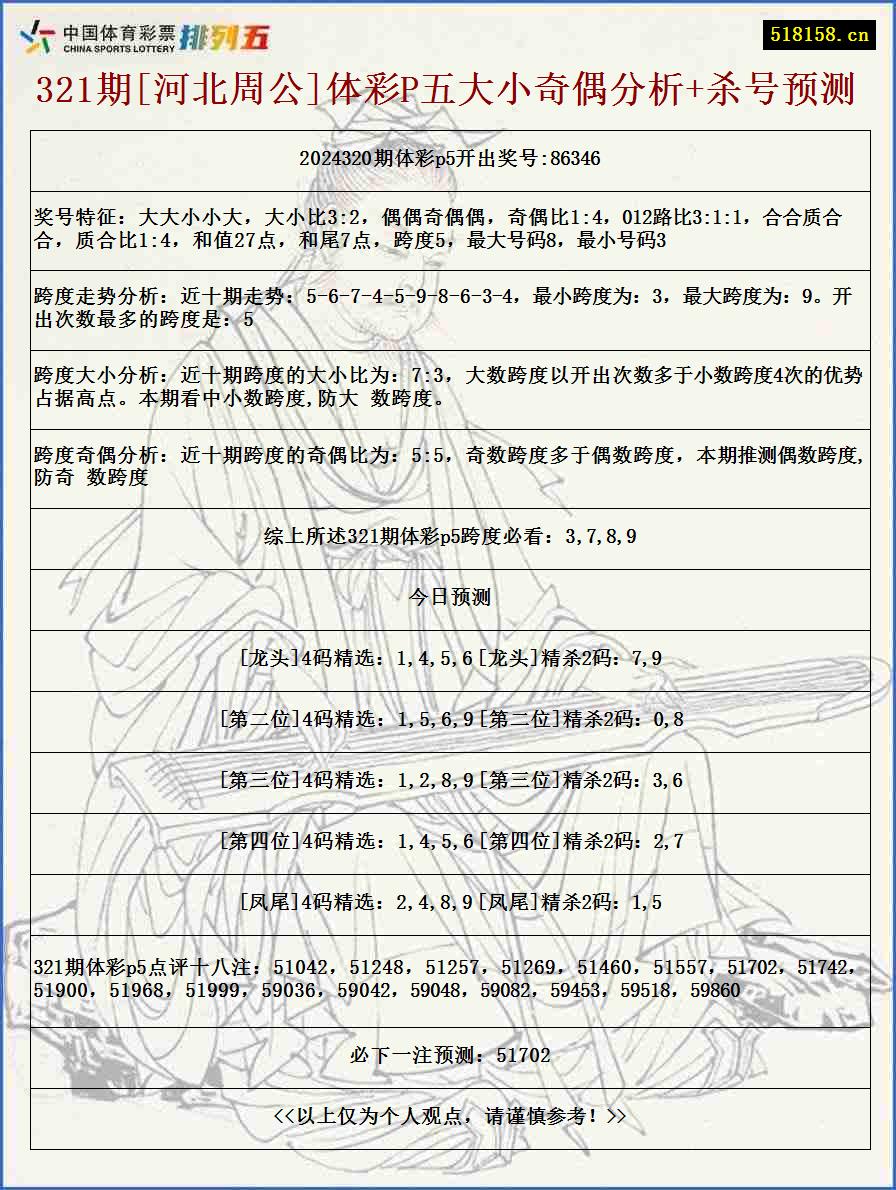 中国体育彩票
CHINA SPORTS LOTTERY
排列五
518158.cn
321期[河北周公]体彩P五大小奇偶分析+杀号预测
2024320期体彩p5开出奖号:86346
奖号特征：大大小小大，大小比3:2，偶偶奇偶偶，奇偶比1:4，012路比3:1:1，合合质合
合，质合比1:4，和值27点，和尾7点，跨度5，最大号码8，最小号码3
跨度走势分析：近十期走势：5-6-7-4-5-9-8-6-3-4，最小跨度为：3，最大跨度为：9。开
出次数最多的跨度是：5
跨度大小分析：近十期跨度的大小比为：7:3，大数跨度以开出次数多于小数跨度4次的优势
占据高点。本期看中小数跨度,防大 数跨度。
跨度奇偶分析：近十期跨度的奇偶比为：5:5，奇数跨度多于偶数跨度，本期推测偶数跨度,
防奇 数跨度
综上所述321期体彩p5跨度必看：3,7,8,9
今日预测
[龙头]4码精选：1,4,5,6[龙头]精杀2码：7,9
[第二位]4码精选：1,5,6,9[第二位]精杀2码：0,8
[第三位]4码精选：1,2,8,9[第三位]精杀2码：3,6
[第四位]4码精选：1,4,5,6[第四位]精杀2码：2,7
[凤尾]4码精选：2,4,8,9[凤尾]精杀2码：1,5
321期体彩p5点评十八注：51042，51248，51257，51269，51460，51557，51702，51742，
51900，51968，51999，59036，59042，59048，59082，59453，59518，59860
必下一注预测：51702
<<以上仅为个人观点，请谨慎参考！>>